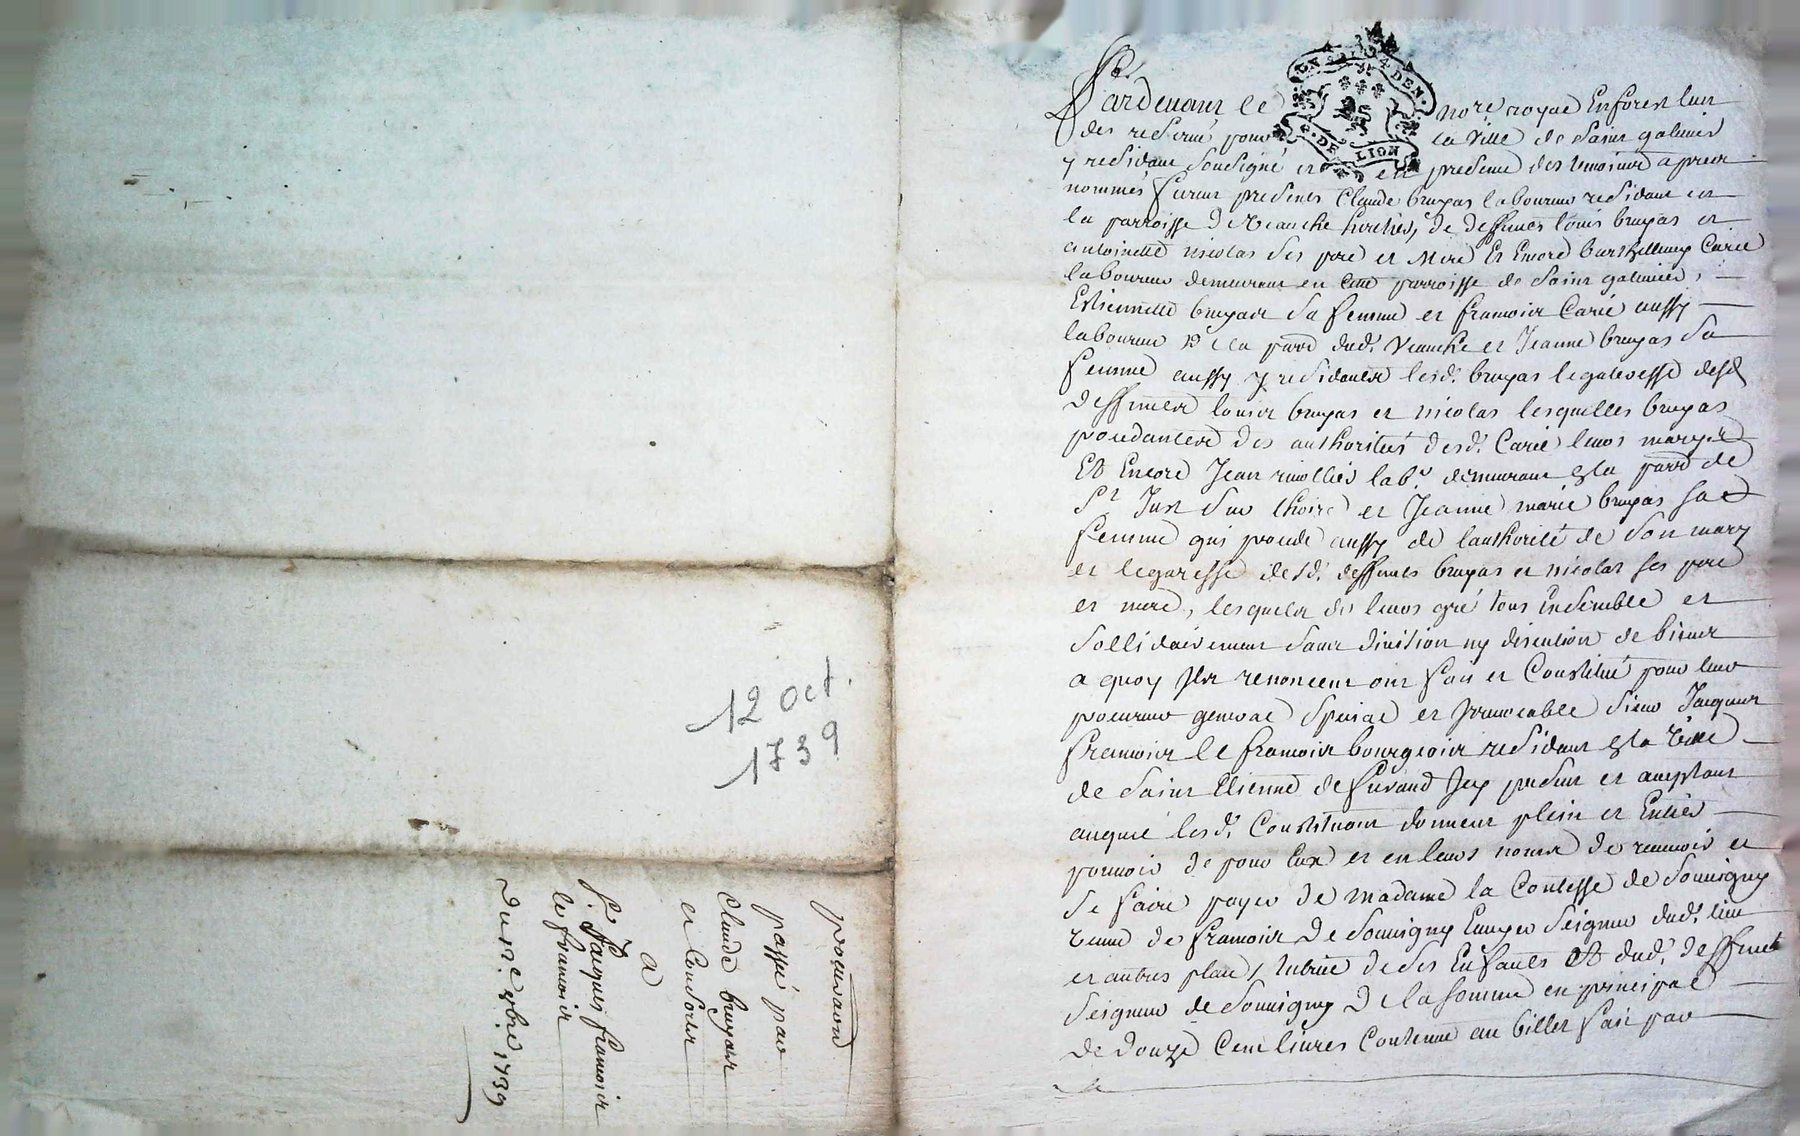 12 oct.
1739
procuration
passé par
Claude bruyas
et Consorts
a
Sr. Jacques francois
le francois
Du 12e 8bre 1739
UN S. 4 DEN.
G. DE LION
Pardevant le notre royal En forest lun
des reservé pour la ville de Saint galmier
y residant soussigné et en presence des temoins apres
nommés furent presents Claude bruyas laboureur residant en
la parroisse de Veauche fils de deffunts louis bruyas et
antoinette nicolas ses pere et Mere Et Encore barthellemy Carié
laboureur demeurant en cette parroisse de Saint galmier,
Estiennette bruyas sa femme et francois Carié aussy
laboureur de la parr. dud. Veauche et Jeanne bruyas Sa
femme aussy y residants lesd. bruyas legateresse desd.
deffunts louis bruyas et nicolas lesquelles bruyas
procedantes des authorités desd. Carié leurs maryes
Et Encore Jean lab. demeurant en la parr. de
St Just sur Loire et Jeanne marie bruyas sa
femme qui procede aussy de lauthorité de son mary
et legataresse desd. deffunts bruyas et nicolas ses pere
et mere, lesquels de leurs gré tous Ensemble et
Sollidairement sans division ny discution de biens
a quoy Ils renoncent ont fait et Constitué pour leur
procureur general special et Irrevocable Sieur Jacques
francois le francois bourgeois residant en la ville
de Saint Etienne de furand Icy present et acceptant
auquel lesd. Constituants donnent plein et Entier
pouvoir de pour Eux et en leurs noms de recevoir et
se faire payer de Madame la Contesse de Souvigny
veuve de francois de Souvigny Ecuyer Seigneur dud. lieu
et autres places, tutrice de ses Enfants Et dud. deffunt
Seigneur de Souvigny de la somme en principal
de douze Cent livres Contenue au billet fait par